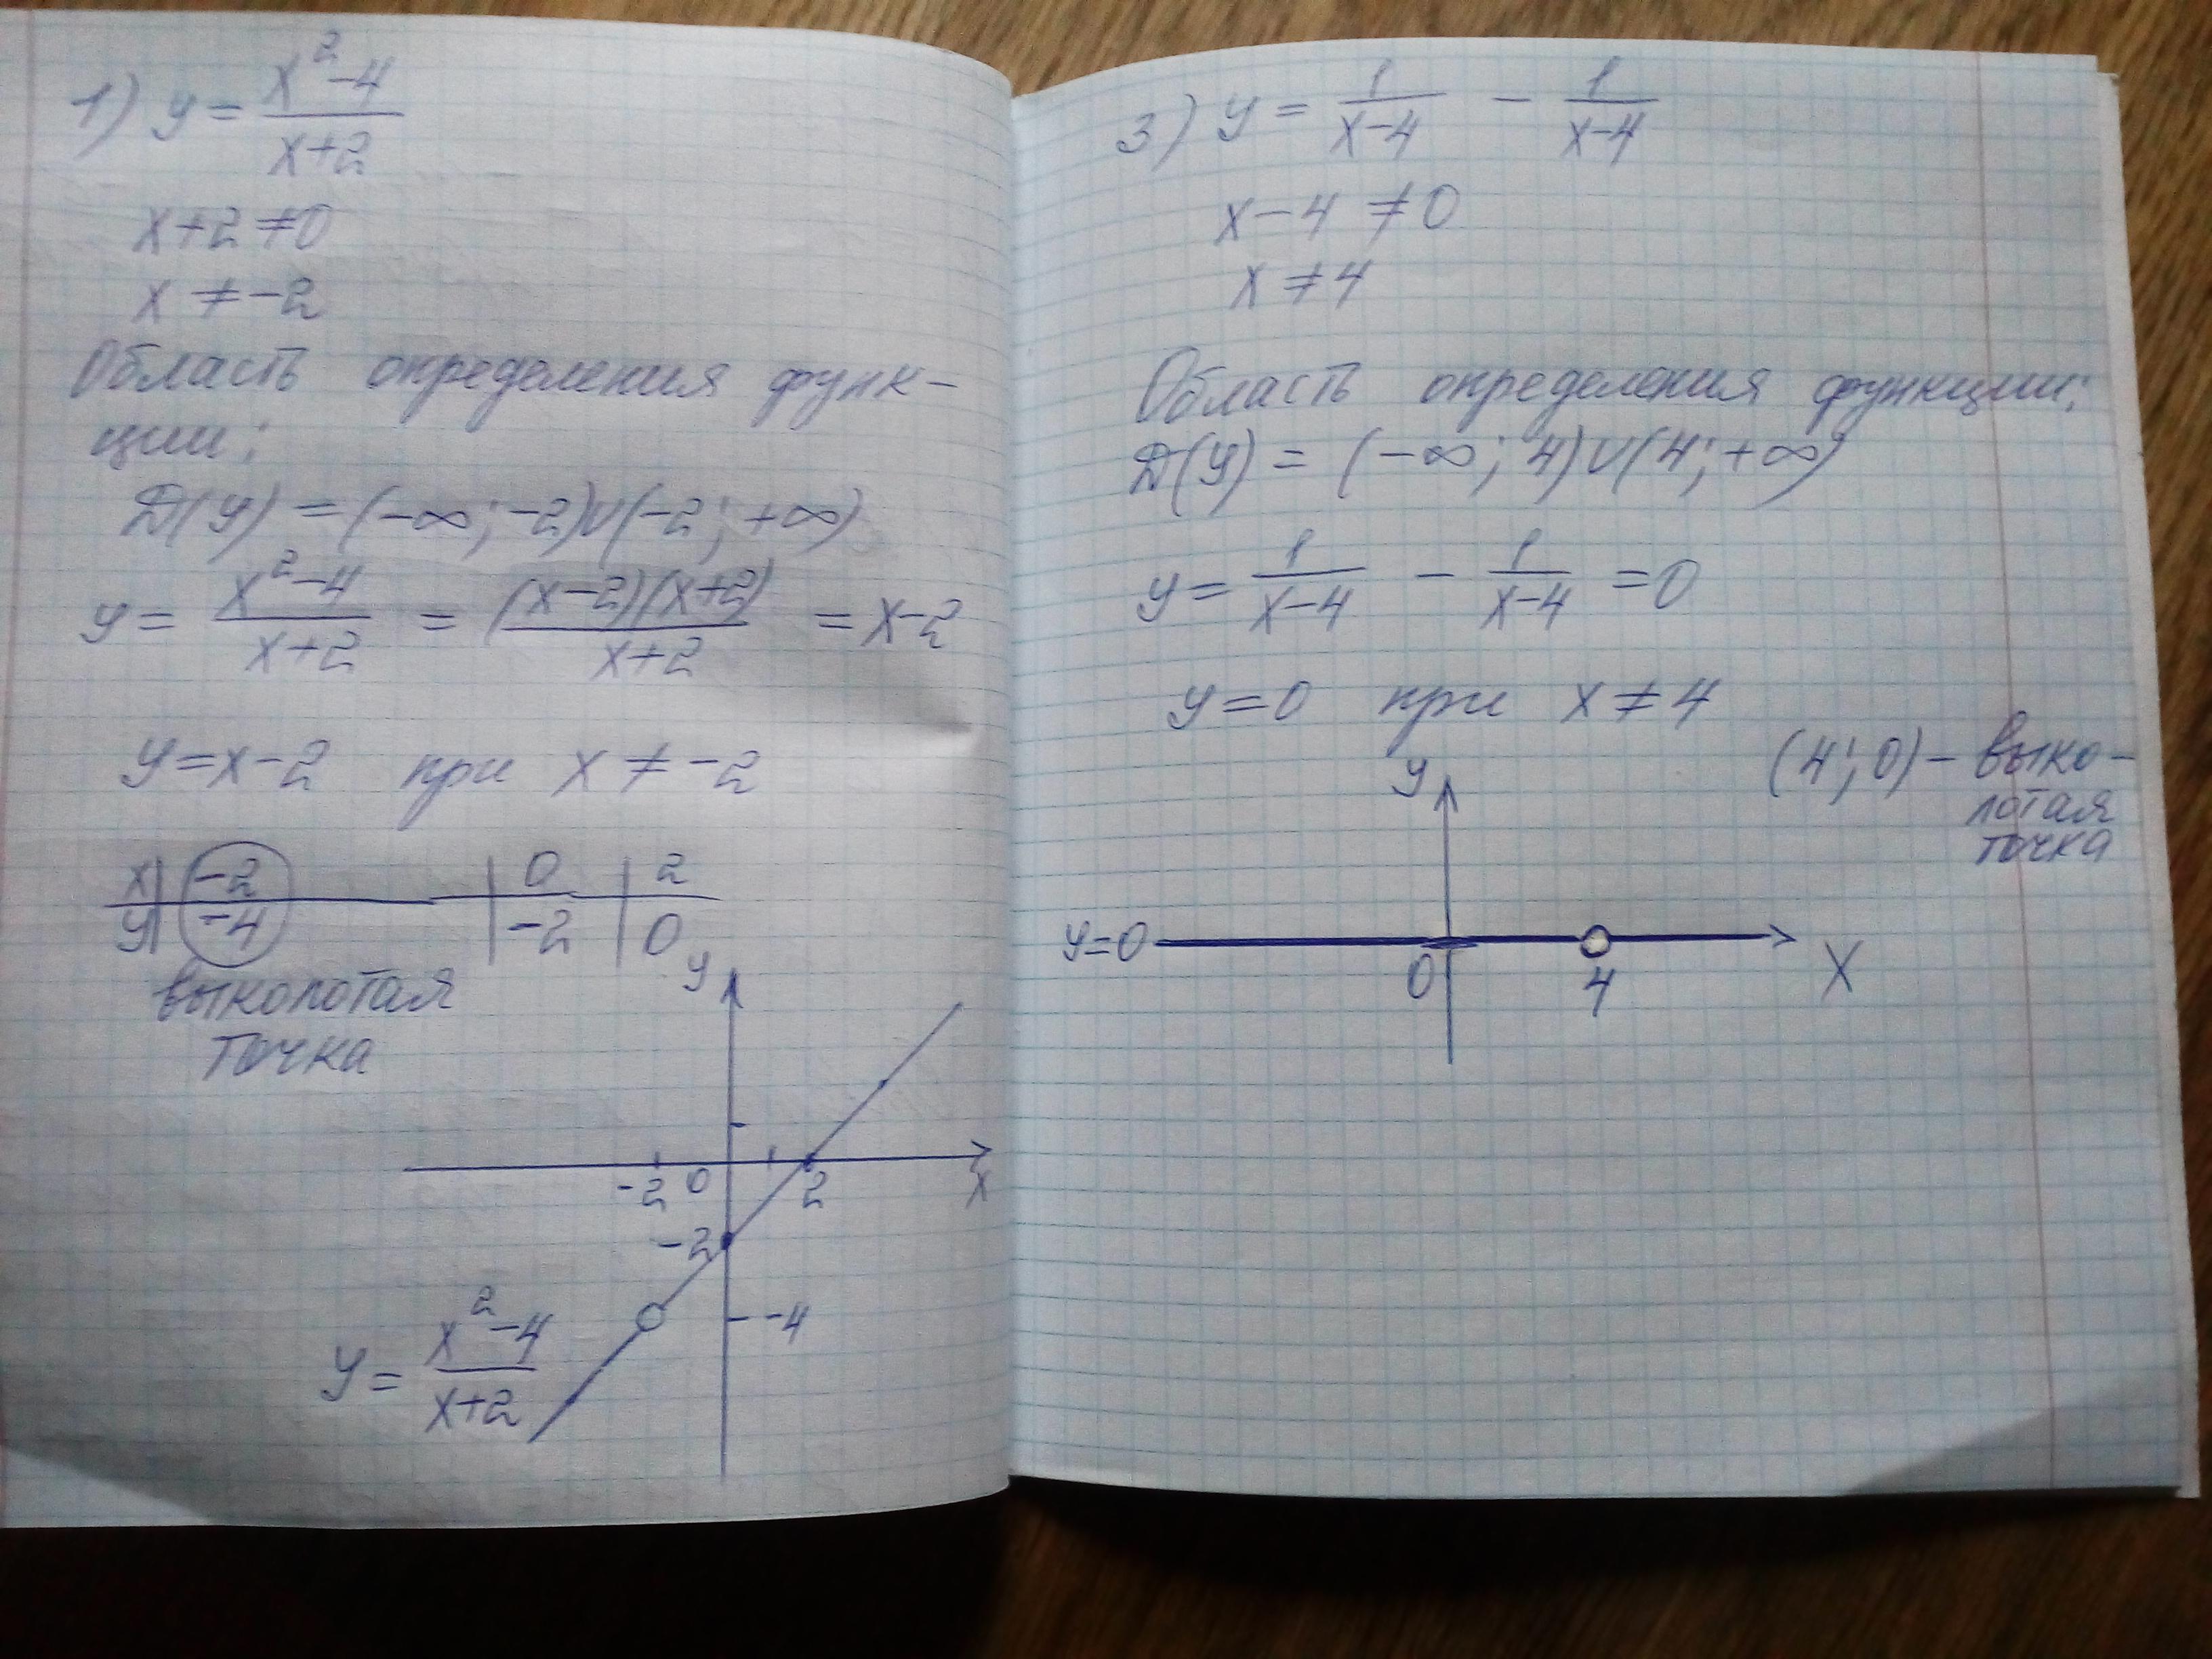 1) y = (x² − 4)/(x+2)
x+2 ≠ 0
x ≠ −2
Область определения функ-
ции:
D(y) = (−∞; −2)∪(−2; +∞)
y = (x² − 4)/(x+2) = ((x−2)(x+2))/(x+2) = x−2
y = x−2 при x ≠ −2
x | −2 | 0 | 2
y | −4 | −2 | 0
выколотая
точка
y
−2 0 2 x
−2
−4
y = (x² − 4)/(x+2)
3) y = 1/(x−4) − 1/(x−4)
x−4 ≠ 0
x ≠ 4
Область определения функции:
D(y) = (−∞; 4)∪(4; +∞)
y = 1/(x−4) − 1/(x−4) = 0
y = 0 при x ≠ 4
(4; 0) – выко-
лотая
точка
y
y=0
0 4 X